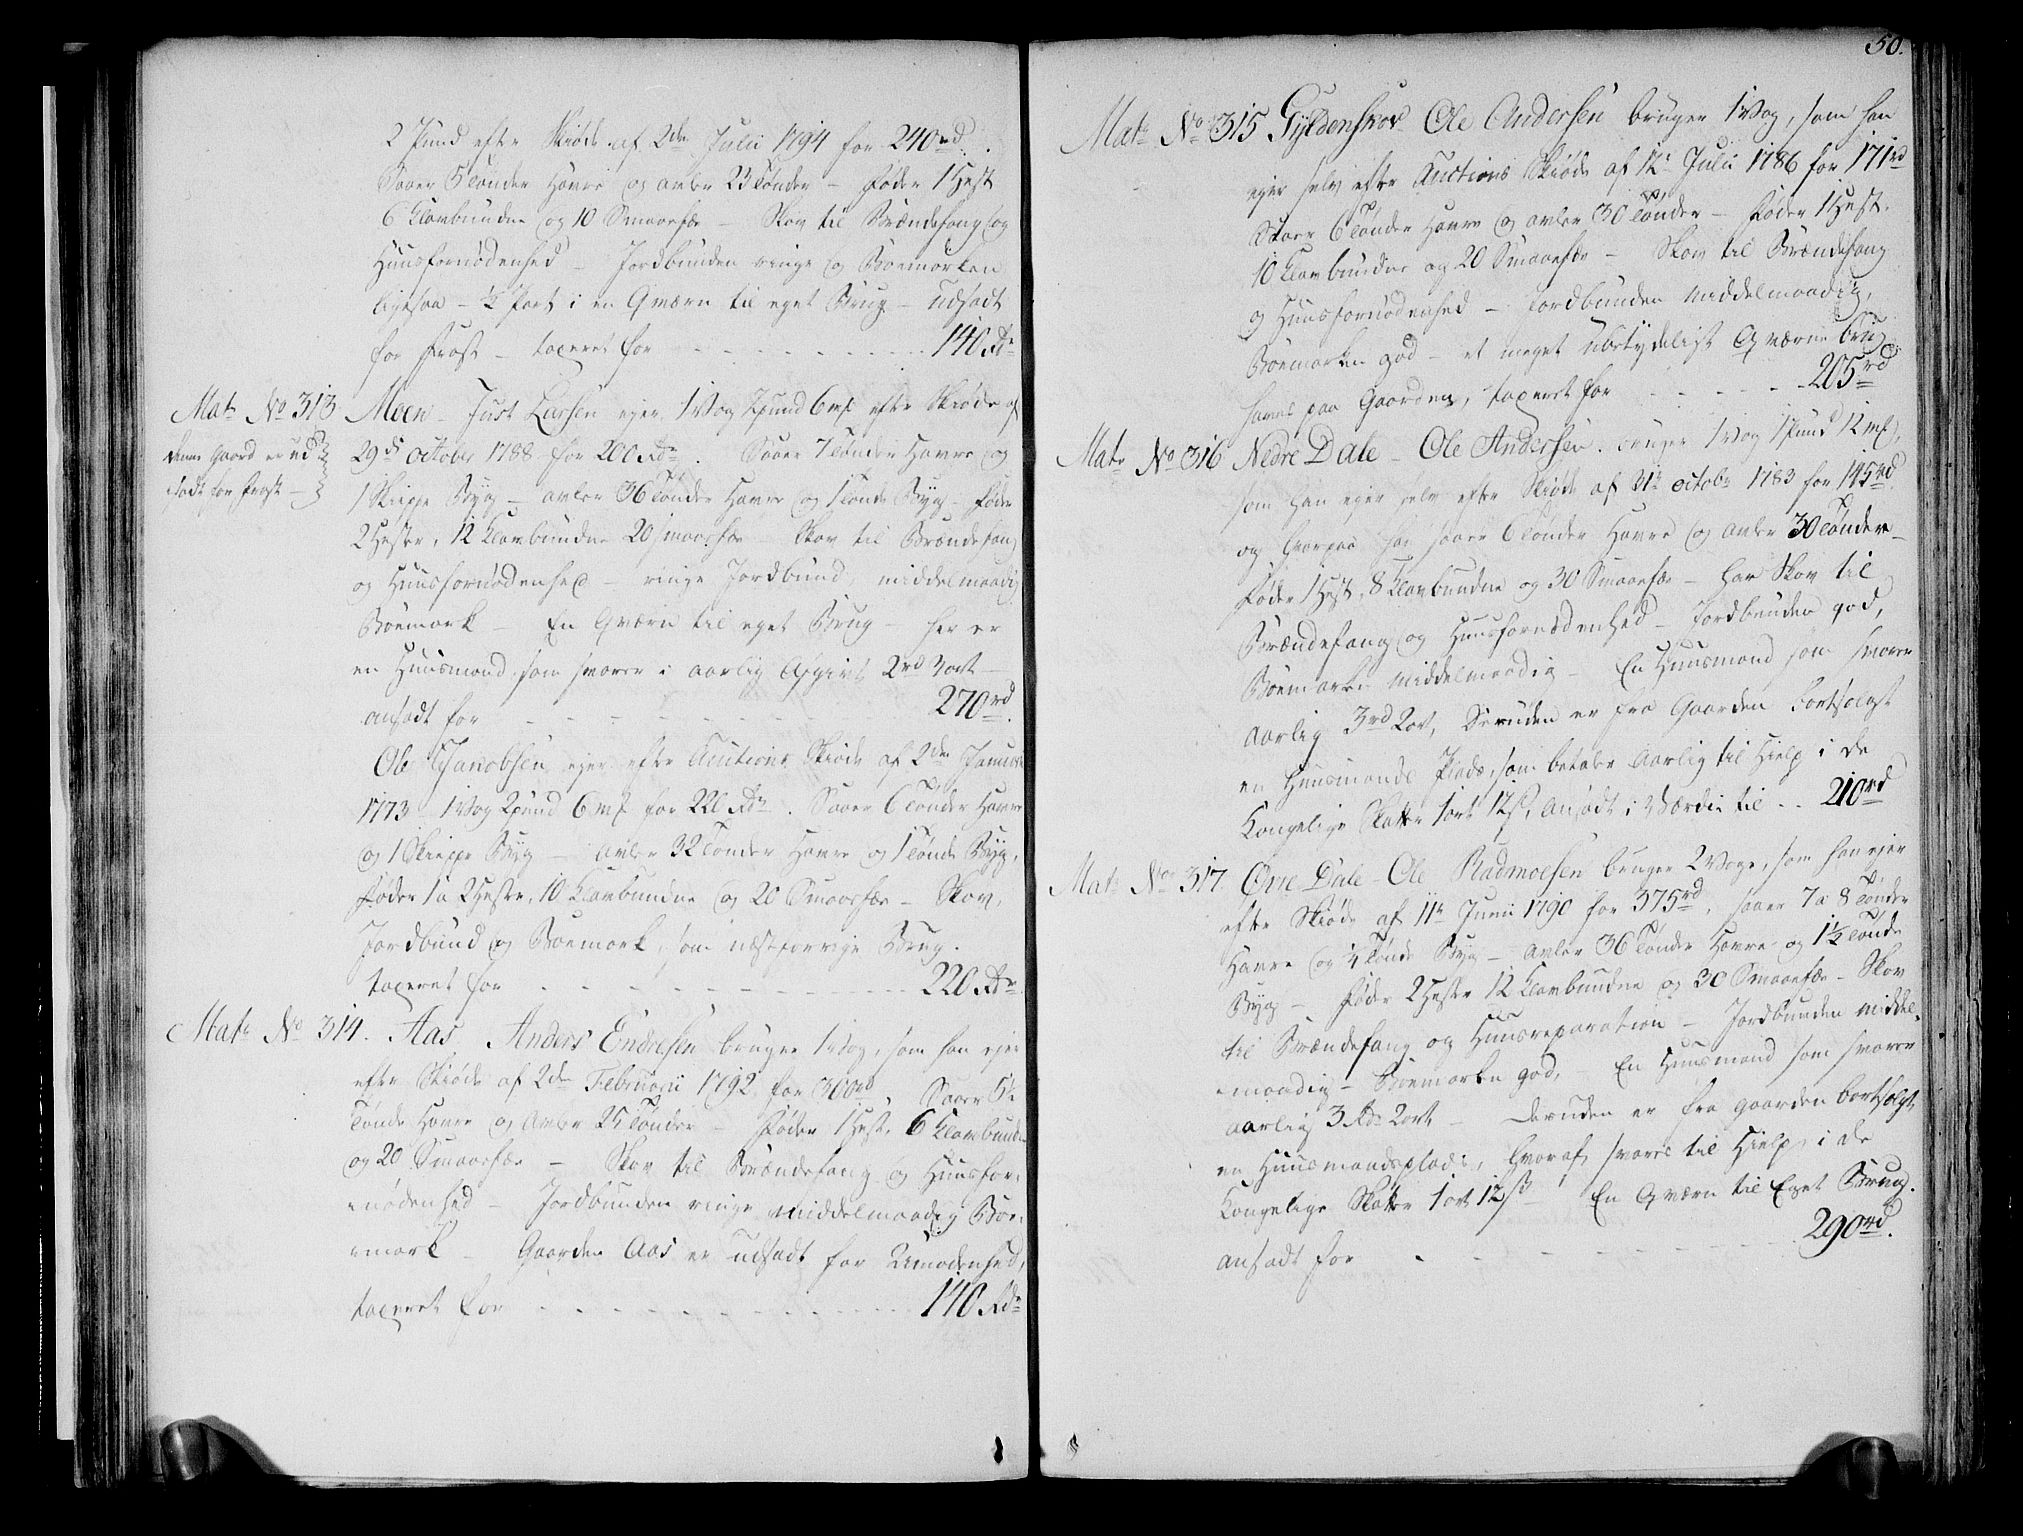 2 Pund efter Skiøde af 2den Julii 1794 for 240 rd.
Saaer 5 Tønder Havre og avler 23 Tønder – Føder 1 Hest
6 Klovbundne og 10 Smaafæ – Skov til Brændefang og
Huusfornødenhed – Jordbunden ringe og Bøemarken
ligesaa – ½ Part i en Qværn til eget Brug – Udsadt
for Frost – taxeret for - - - - - - - - 140 Rdr
Matr No 313 Meen – Just Larsen ejer 1 Vog 2 pund 6 mk efter Skiøde af
denne Gaard er ud
sadt for Frost –
29de October 1788 for 200 Rdr. Saaer 7 Tønder Havre og
1 Skieppe Byg – avler 36 Tønder Havre og 1 Tønde Byg – Føder
2 Heste, 12 Klovbundne 20 smaafæ – Skov til Brændefang
og Huusfornødenhed – ringe Jordbund, middelmaadig
Bøemark – En Qværn til eget Brug – her er
en Huusmand som svarer i aarlig Afgivt 2 rd 3 ort –
ansadt for - - - - - - - 270 rd.
Ole Jacobsen ejer efter Auctions Skiøde af 2den Januar
1773 1 Vog 2 pund 6 mk for 220 Rdr. Saaer 6 Tønder Havre
og 1 Skieppe Byg – avler 32 Tønder Havre og 1 Tønde Byg,
Føder 1 a 2 Heste, 10 Klovbundne og 20 Smaafæ – Skov,
Jordbund og Bøemark, som næstforrige Brug.
taxeret for - - - - - - - - - 220 Rdr
Matr No 314. Aas Anders Endresen bruger 1 Vog, som han ejer
efter Skiøde af 2den Februarii 1792 for 300 rd, Saaer 5½
Tønde Havre og avler 25 Tønder – Føder 1 Hest, 6 Klovbundne
og 20 Smaafæ – Skov til Brændefang og Huusfor-
nødenhed – Jordbunden ringe middelmaadig Bøe-
mark – Gaarden Aas er udsadt for Umodenhed,
taxeret for - - - - - - - - - 140 Rdr
50.
Matr No 315 Gyldenskov – Ole Andersen bruger 1 Vog, som han
ejer selv efter Auctions Skiøde af 12te Julii 1786 for 171 rd
Saaer 6 Tønder Havre og avler 30 Tønder – Føder 1 Hest.
10 Klovbundne og 20 Smaafæ – Skov til Brændefang
og Huusfornødenhed – Jordbunden Middelmaadig,
Bøemarken god – et meget ubetydeligt Qværnebrug
haves paa Gaarden, taxeret for - - - - 205 rd
Matr No 316 Nedre Dale – Ole Andersen bruger 1 Vog 1 Pund 12 mk,
som han ejer selv efter Skiøde af 31te Octobr 1783 for 145 rd
og hvorpaa han saaer 6 Tønder Havre og avler 30 Tønder –
Føder 1 Hest, 8 Klovbundne og 30 Smaafæ – har Skov til
Brændefang og Huusfornødenhed – Jordbunden god,
Bøemarken Middelmaadig – En Huusmand som svarer
aarlig 3 rd 2 ort, Desuden er fra Gaarden bortsolgt
en Huusmands Plads, som betaler aarlig til Hielp i de
Kongelige Skatter 1 ort 12 s, ansadt i Værdie til - - 210 rd
Matr No 317. Øvre Dale – Ole Rasmussen bruger 2 Voger, som han ejer
efter Skiøde af 11te Junii 1790 for 375 rd, saaer 7 a 8 Tønder
Havre og ¼ Tønde Byg – avler 36 Tønder Havre og 1½ Tønde
Byg – Føder 2 Heste 12 Klovbundne og 30 Smaafæ – Skov
til Brændefang og Huusreparation – Jordbunden Middel-
maadig – Bøemarken god, – En Huusmand som svarer
aarlig 3 Rdr 2 ort – Desuden er fra gaarden bortsolgt
en Huusmandsplads, hvoraf svares til Hielp i de
Kongelige Skatter 1 ort 12 s – En Qværn til Eget Brug.
ansadt for - - - - - - - 290 rd.